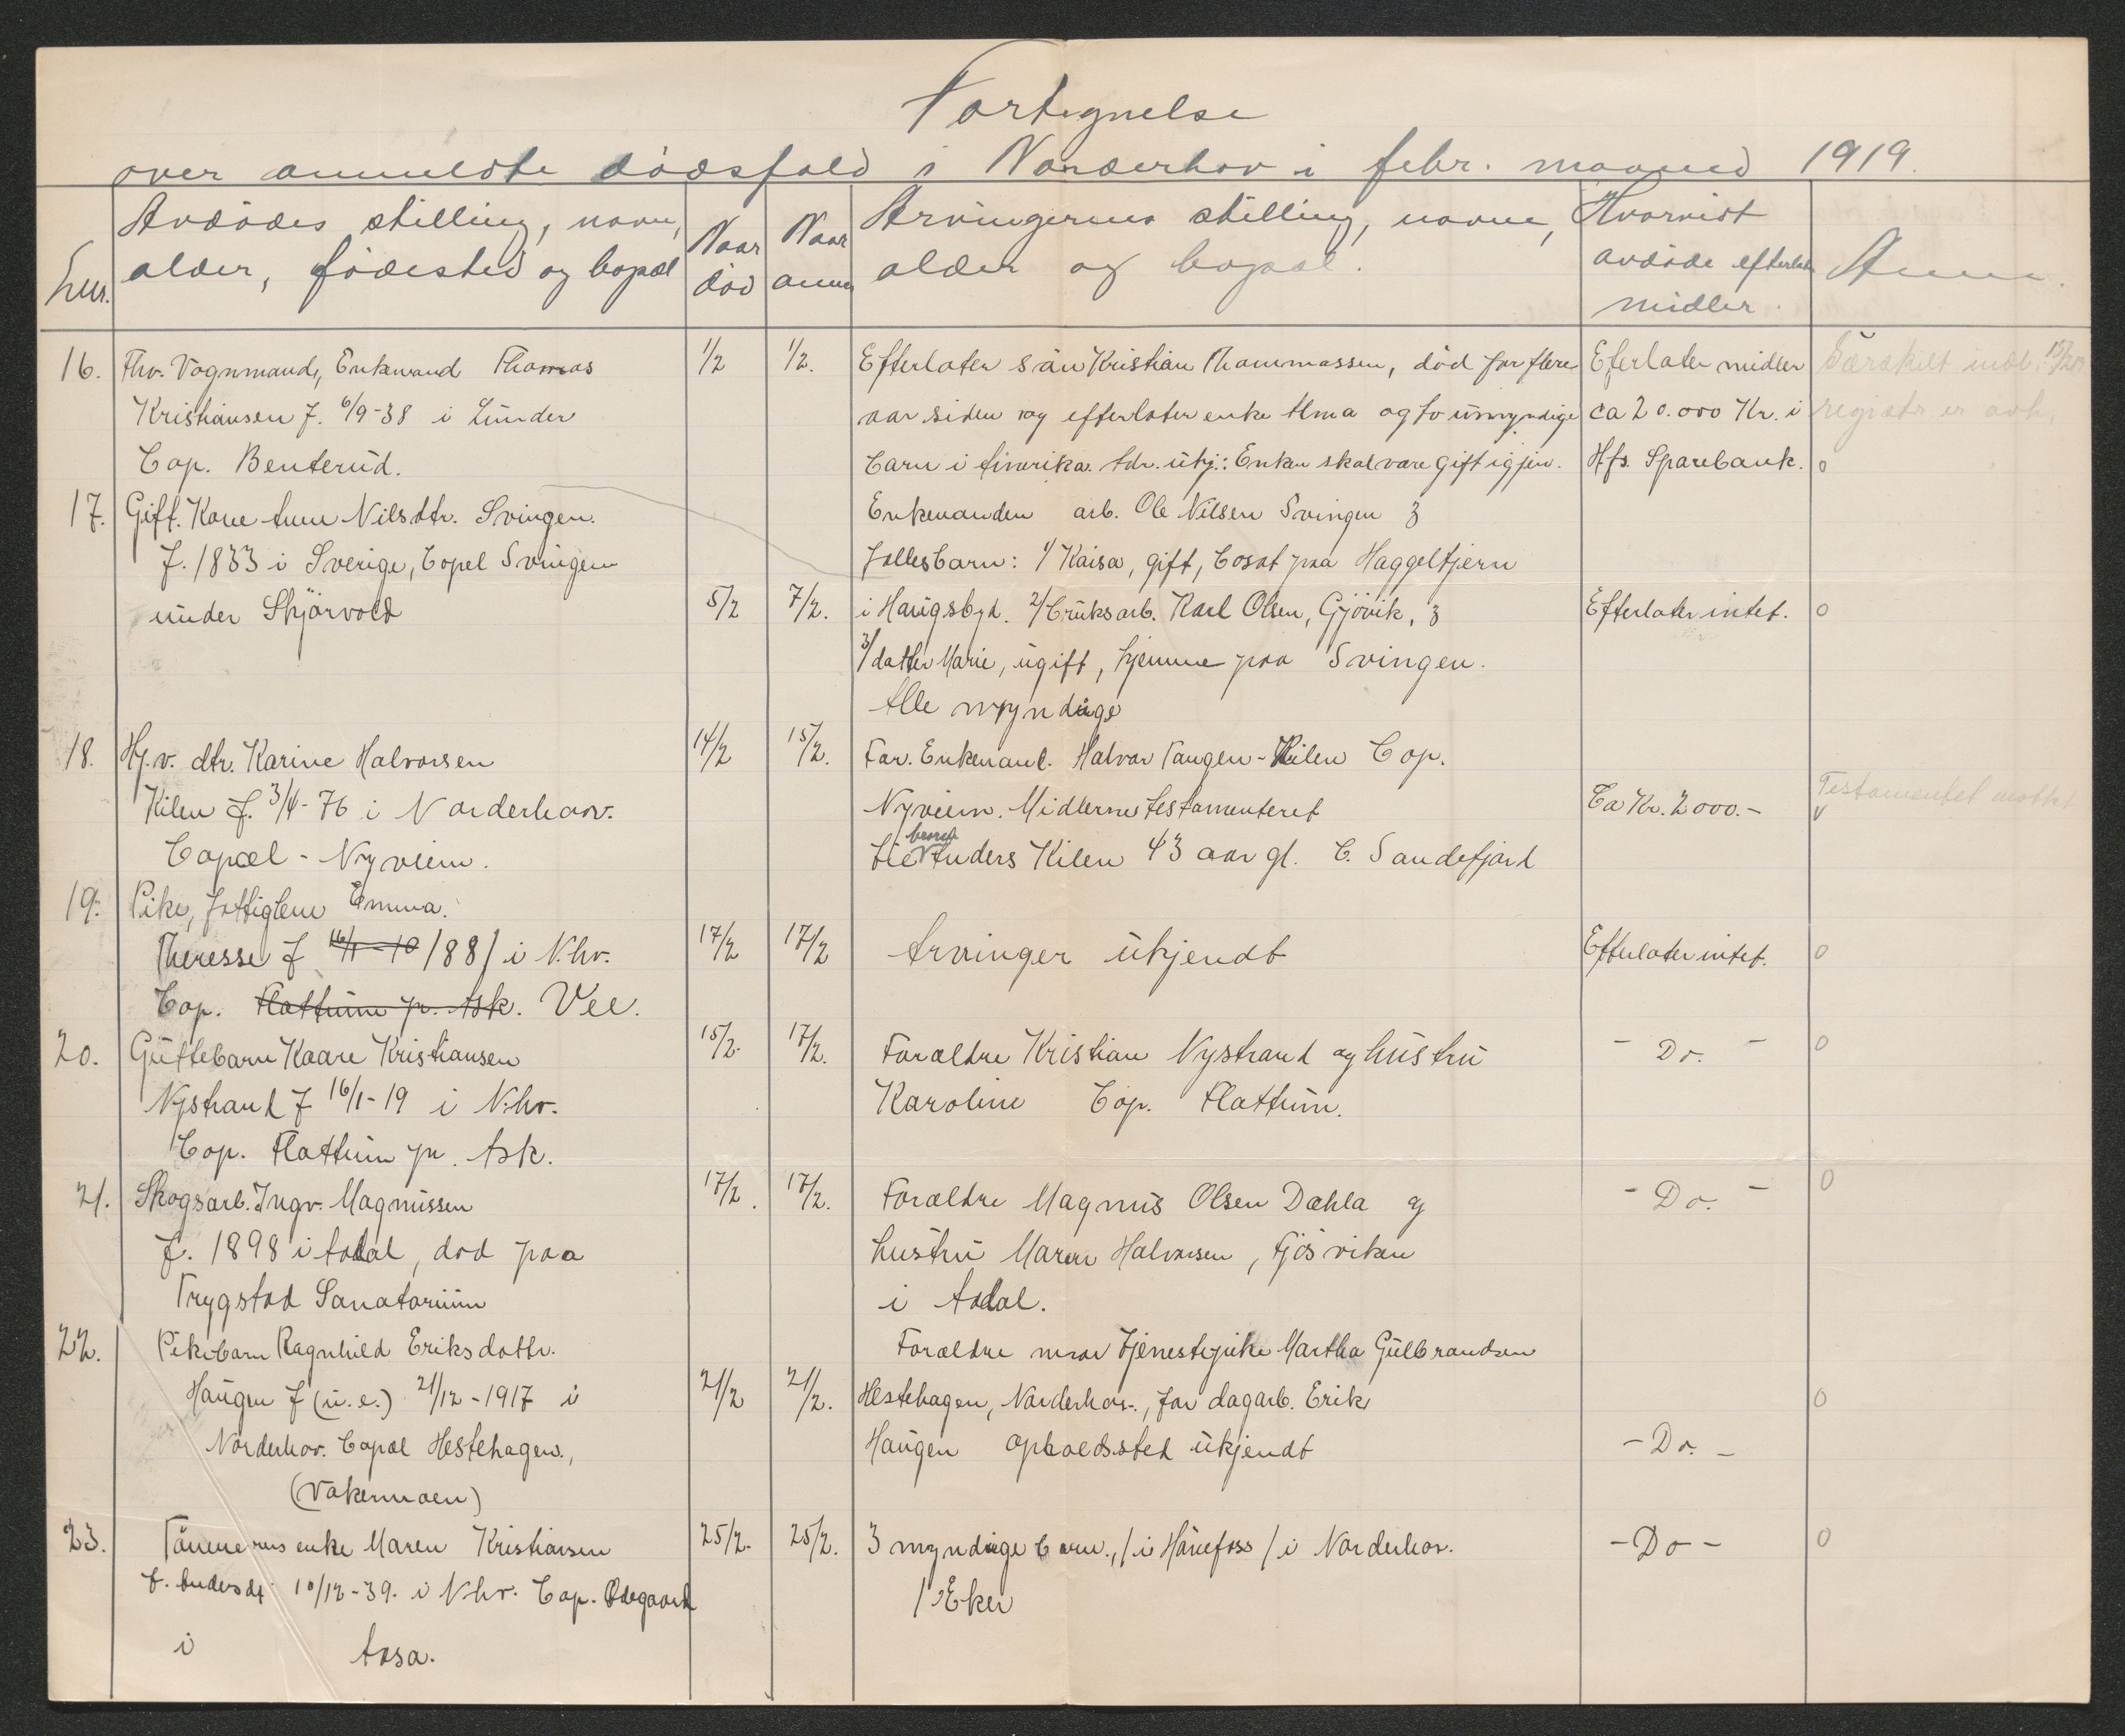 Fortegnelse
over anmeldte dødsfald i Norderhov i febr. maaned 1919.
Lnr.
Avdødes stilling, navn,
alder, fødested og bopæl
Naar
død
Naar
anm
Arvingernes stilling, navne,
alder og bopæl.
Hvorvist
avdøde efterlat
midler.
Anm.
16. Fhv. Vognmand, Enkemand Thomas
Kristiansen f. 6/9-38 i Lunder
bop. Benterud.
1/2
1/2.
Efterlater sön Kristian Thommassen, död for flere
aar siden og efterlater enke Alma og to umyndige
barn i Amerika. Adr. ukj.: Enken skal være gift igjen.
Eferlater midler
ca 20.000 Kr. i
Hfs. Sparebank.
Særskilt indb. 12/2
registr. er avh.
0
17. Gift. Kone Anne Nilsdtr. Svingen.
f. 1833 i Sverige, bopel Svingen
under Skjörvold
5/2
7/2.
Enkemanden arb. Ole Nilsen Svingen 3
fællesbarn: 1/ Kaisa, gift, bosat paa Haggeltjern
i Haugsbyd. 2/ bruksarb. Karl Olsen, Gjövik, 3
3/ datter Marie, ugift, hjemme paa Svingen.
Alle myndige
Efterlater intet.
0
18. Hj.v. dtr. Karine Halvorsen
Kilen f. 3/4-76 i Norderhov.
bopæl - Nyveien.
14/2
15/2.
Far. Enkemand. Halvor Tangen-Kilen bop.
Nyveien. Midlerne testamenteret
til Anders Kilen 43 aar gl. b. Sandefjord
Ca Kr. 2000.-
Testamentet mottat
v
19. Pike, fattiglem Emma.
Theresse f 16/1-19 1881 i N.hv.
bop. Flattum pr. Ask. Vee.
17/2
17/2
Arvinger ukjendt
Efterlater intet.
0
20. Guttebarn Kaare Kristiansen
Nystrand f 16/1-19 i N.hv.
bop. Flattum pr. Ask.
15/2.
17/2.
Forældre Kristian Nystrand og hustru
Karoline bop. Flattum.
- Do. -
0
21. Skogsarb. Ingv. Magnussen
f. 1898 i Aadal, död paa
Trygstad Sanatorium
17/2.
17/2.
Forældre Magnus Olsen Dæhla og
hustru Maren Halvorsen, Fjösviken
i Aadal.
- Do. -
0
22. Pikebarn Ragnhild Eriksdattr.
Haugen f (u.e.) 21/12-1917 i
Norderhov. bopæl Hestehagen.,
(Vakermoen)
21/2
21/2.
Forældre mor tjenestepike Martha Gulbrandsen
Hestehagen, Norderhov., far dagarb. Erik
Haugen opholdssted ukjendt
- Do. -
0
23. Töinenrus enke Maren Kristiansen
f. Andersdt. 10/12-39. i N.hv. bop. Ødegaard
i Aasa.
25/2.
25/2.
3 myndige barn., 1 i Hönefoss 1 i Norderhov.
1 Eker
- Do -
0